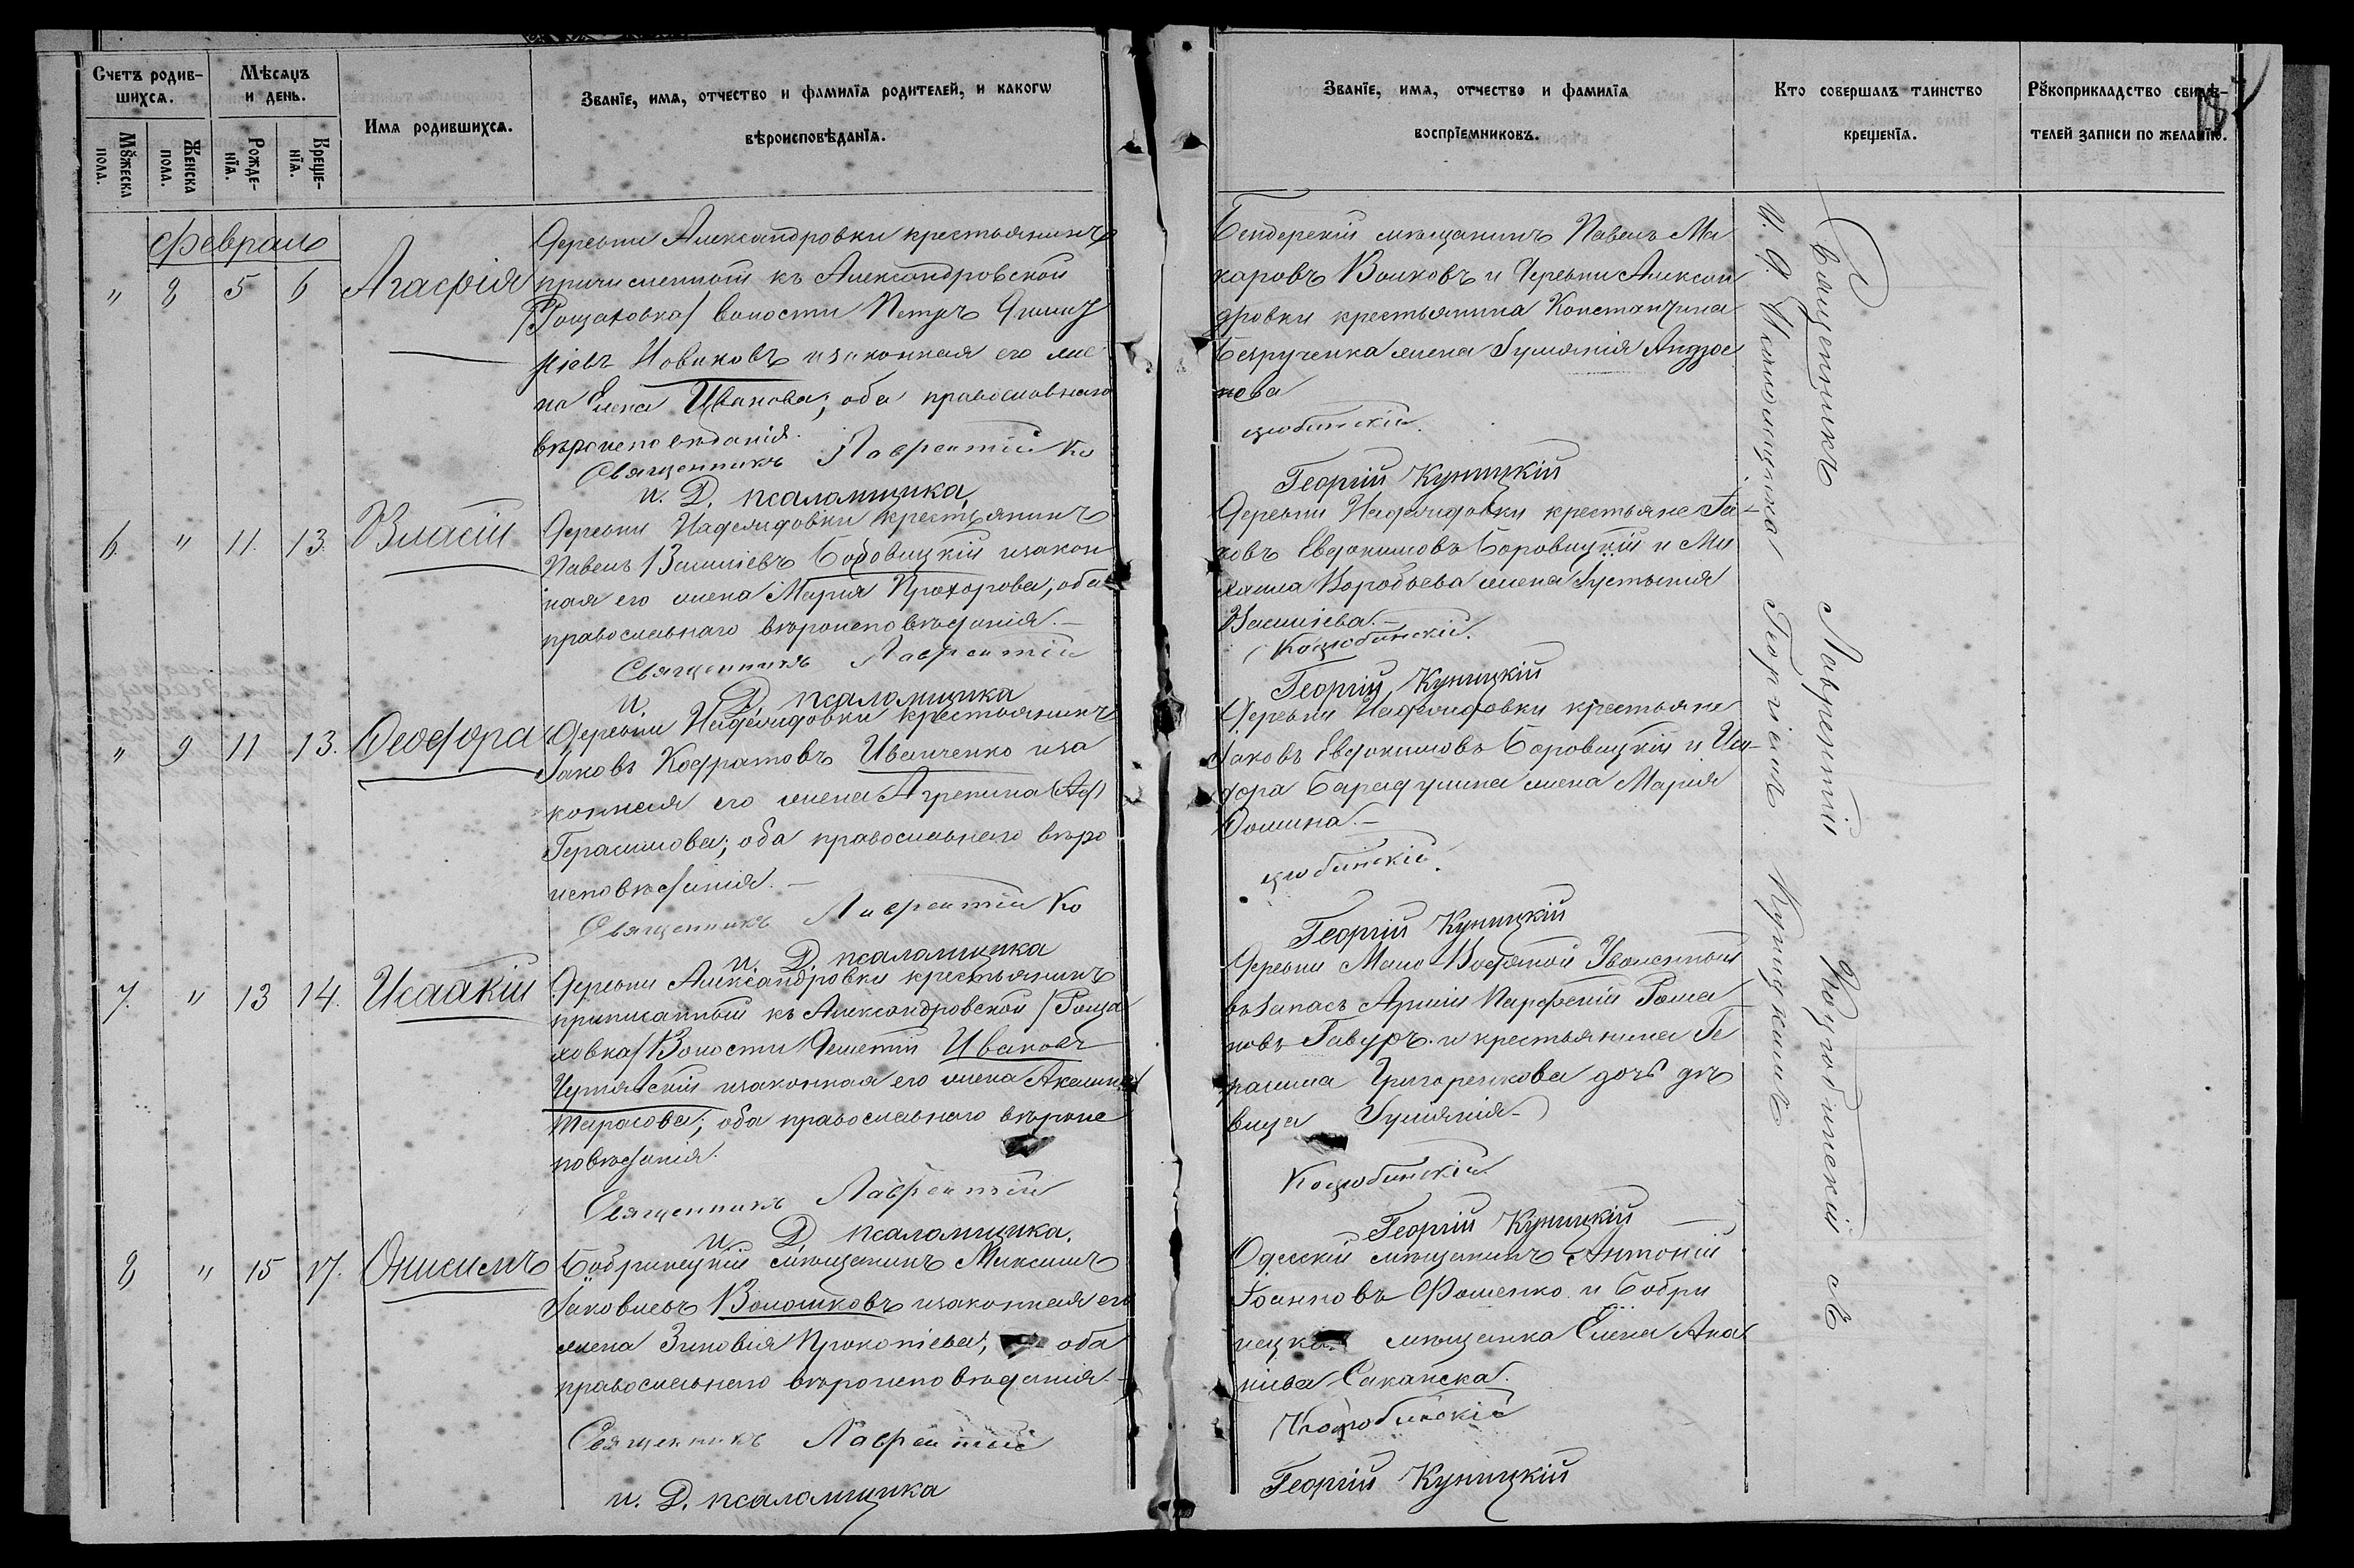 Счетъ родив-
шихся.
Мѣсяцъ
и день.
Имя родившихся.
Званїе, имя, отчество и фамилїя родителей, и какогѡ
вѣроисповѣданїя.
Мꙋжеска
пола.
Женска
пола.
Рожде-
нїя.
Креще-
нїя.
Февраль
" 8 5 6 Агафія
Деревни Александровки крестьянинъ
причисленный къ Александровской
/Рощаховка/ волости Петръ
Новиковъ и законная его же
на Елена Иванова; оба православнаго
вѣроисповѣданія.
Священникъ Лаврентій Ко
и. Д. псаломщика
6. " 11. 13. Власій
Деревни Наделидовки крестьянинъ
Павелъ Василіевъ Боровицкій и закон
ная его жена Марія Прохорова; оба
православнаго вѣроисповѣданія.-
Священникъ Лаврентій
и. Д. псаломщика
" 9 11 13. Ѳеодора
Деревни Наделидовки крестьянинъ
Іаковъ Кодратовъ Иванченко и за
конная его жена Агрепина
Герасимова; оба православнаго вѣро
исповѣданія.-
Священникъ Лаврентій Ко
и. Д. псаломщика
7. " 13 14. Исаакій
Деревни Александровки крестьянинъ
приписанный къ Александровской /Роща
ховка/ Волости Ивановъ
Чернявскій и законная его жена Акелина
Тарасова; оба православнаго вѣроис
повѣданія.
Священникъ Лаврентій
и. Д. псаломщика.
8 " 15 17. Онисимъ
Бобринецкій мѣщанинъ Максимъ
Іаковлевъ Волошковъ и законная его
жена Зиновія Прокопіева; оба
православнаго вѣроисповѣданія.-
Священникъ Лаврентій
и. Д. псаломщика
Званїе, имя, отчество и фамилїя
воспрїемниковъ.
Кто совершалъ таинство
крещенїя.
Рꙋкоприкладство свидѣ-
телей записи по желанїю.
Бендерскій мѣщанинъ Павелъ Ма
каровъ Волковъ и Деревни Алексан
дровки крестьянина Константина
Безрученка жена Іуліанія
нова
цюбинскій.
Георгій Куницкій
Деревни Наделидовки крестьяне Іа-
ковъ Евдокимовъ Боровицкій и Ми
хаила Воробьева жена Іустинія
Василіева.-
Коцюбинскій.
Георгій Куницкій
Деревни Наделидовки крестьяне
Іаковъ Евдокимовъ Боровицкій и Иси-
дора жена Марія
Ѳомина.-
цюбинскій.
Георгій Куницкій
Деревни Мало Водяной Уволенный
въ Запасъ Арміи Парфеній Рома
новъ Гавуръ и крестьянина Ге
расима Григоренкова дочь дѣ
вица Іуліанія-
Коцюбинскій
Георгій Куницкій
Одесскій мѣщанинъ Антоній
Іоанновъ Фоменко и Бобри
нецкая мѣщанка Елена Ана
ніева Саканска.
Коцюбинскій
Георгій Куницкій
Священникъ Лаврентій Коцюбинскій съ
И. Д. Псаломщика Георгіемъ Куницкимъ